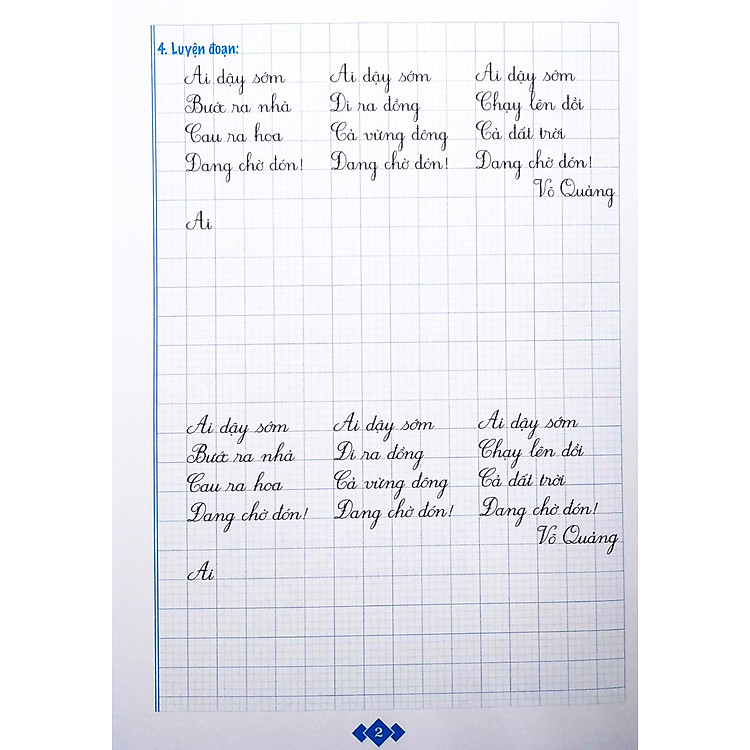 4. Luyện đoạn:
Ai dậy sớm
Bước ra nhà
Cau ra hoa
Đang chờ đón!
Ai dậy sớm
Đi ra đồng
Cả vừng đông
Đang chờ đón!
Ai dậy sớm
Chạy lên đồi
Cả đất trời
Đang chờ đón!
Võ Quảng
Ai
Ai dậy sớm
Bước ra nhà
Cau ra hoa
Đang chờ đón!
Ai dậy sớm
Đi ra đồng
Cả vừng đông
Đang chờ đón!
Ai dậy sớm
Chạy lên đồi
Cả đất trời
Đang chờ đón!
Võ Quảng
Ai
2